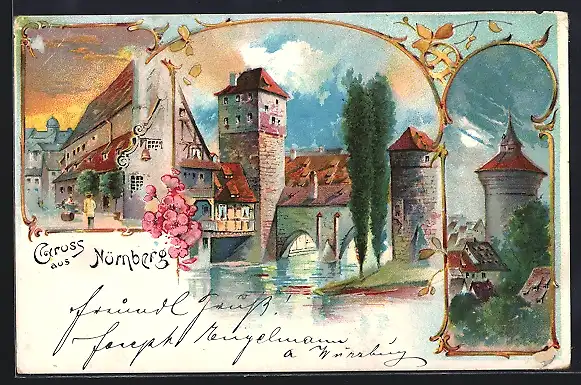 Gruss
aus Nürnberg
Freundl Gruß!
Joseph Engelmann
a Würzburg